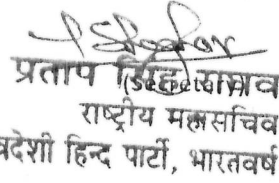 प्रताप सिंह राघव
(Secretary)
राष्ट्रीय महासचिव
वदेशी हिन्द पार्टी, भारतवर्ष